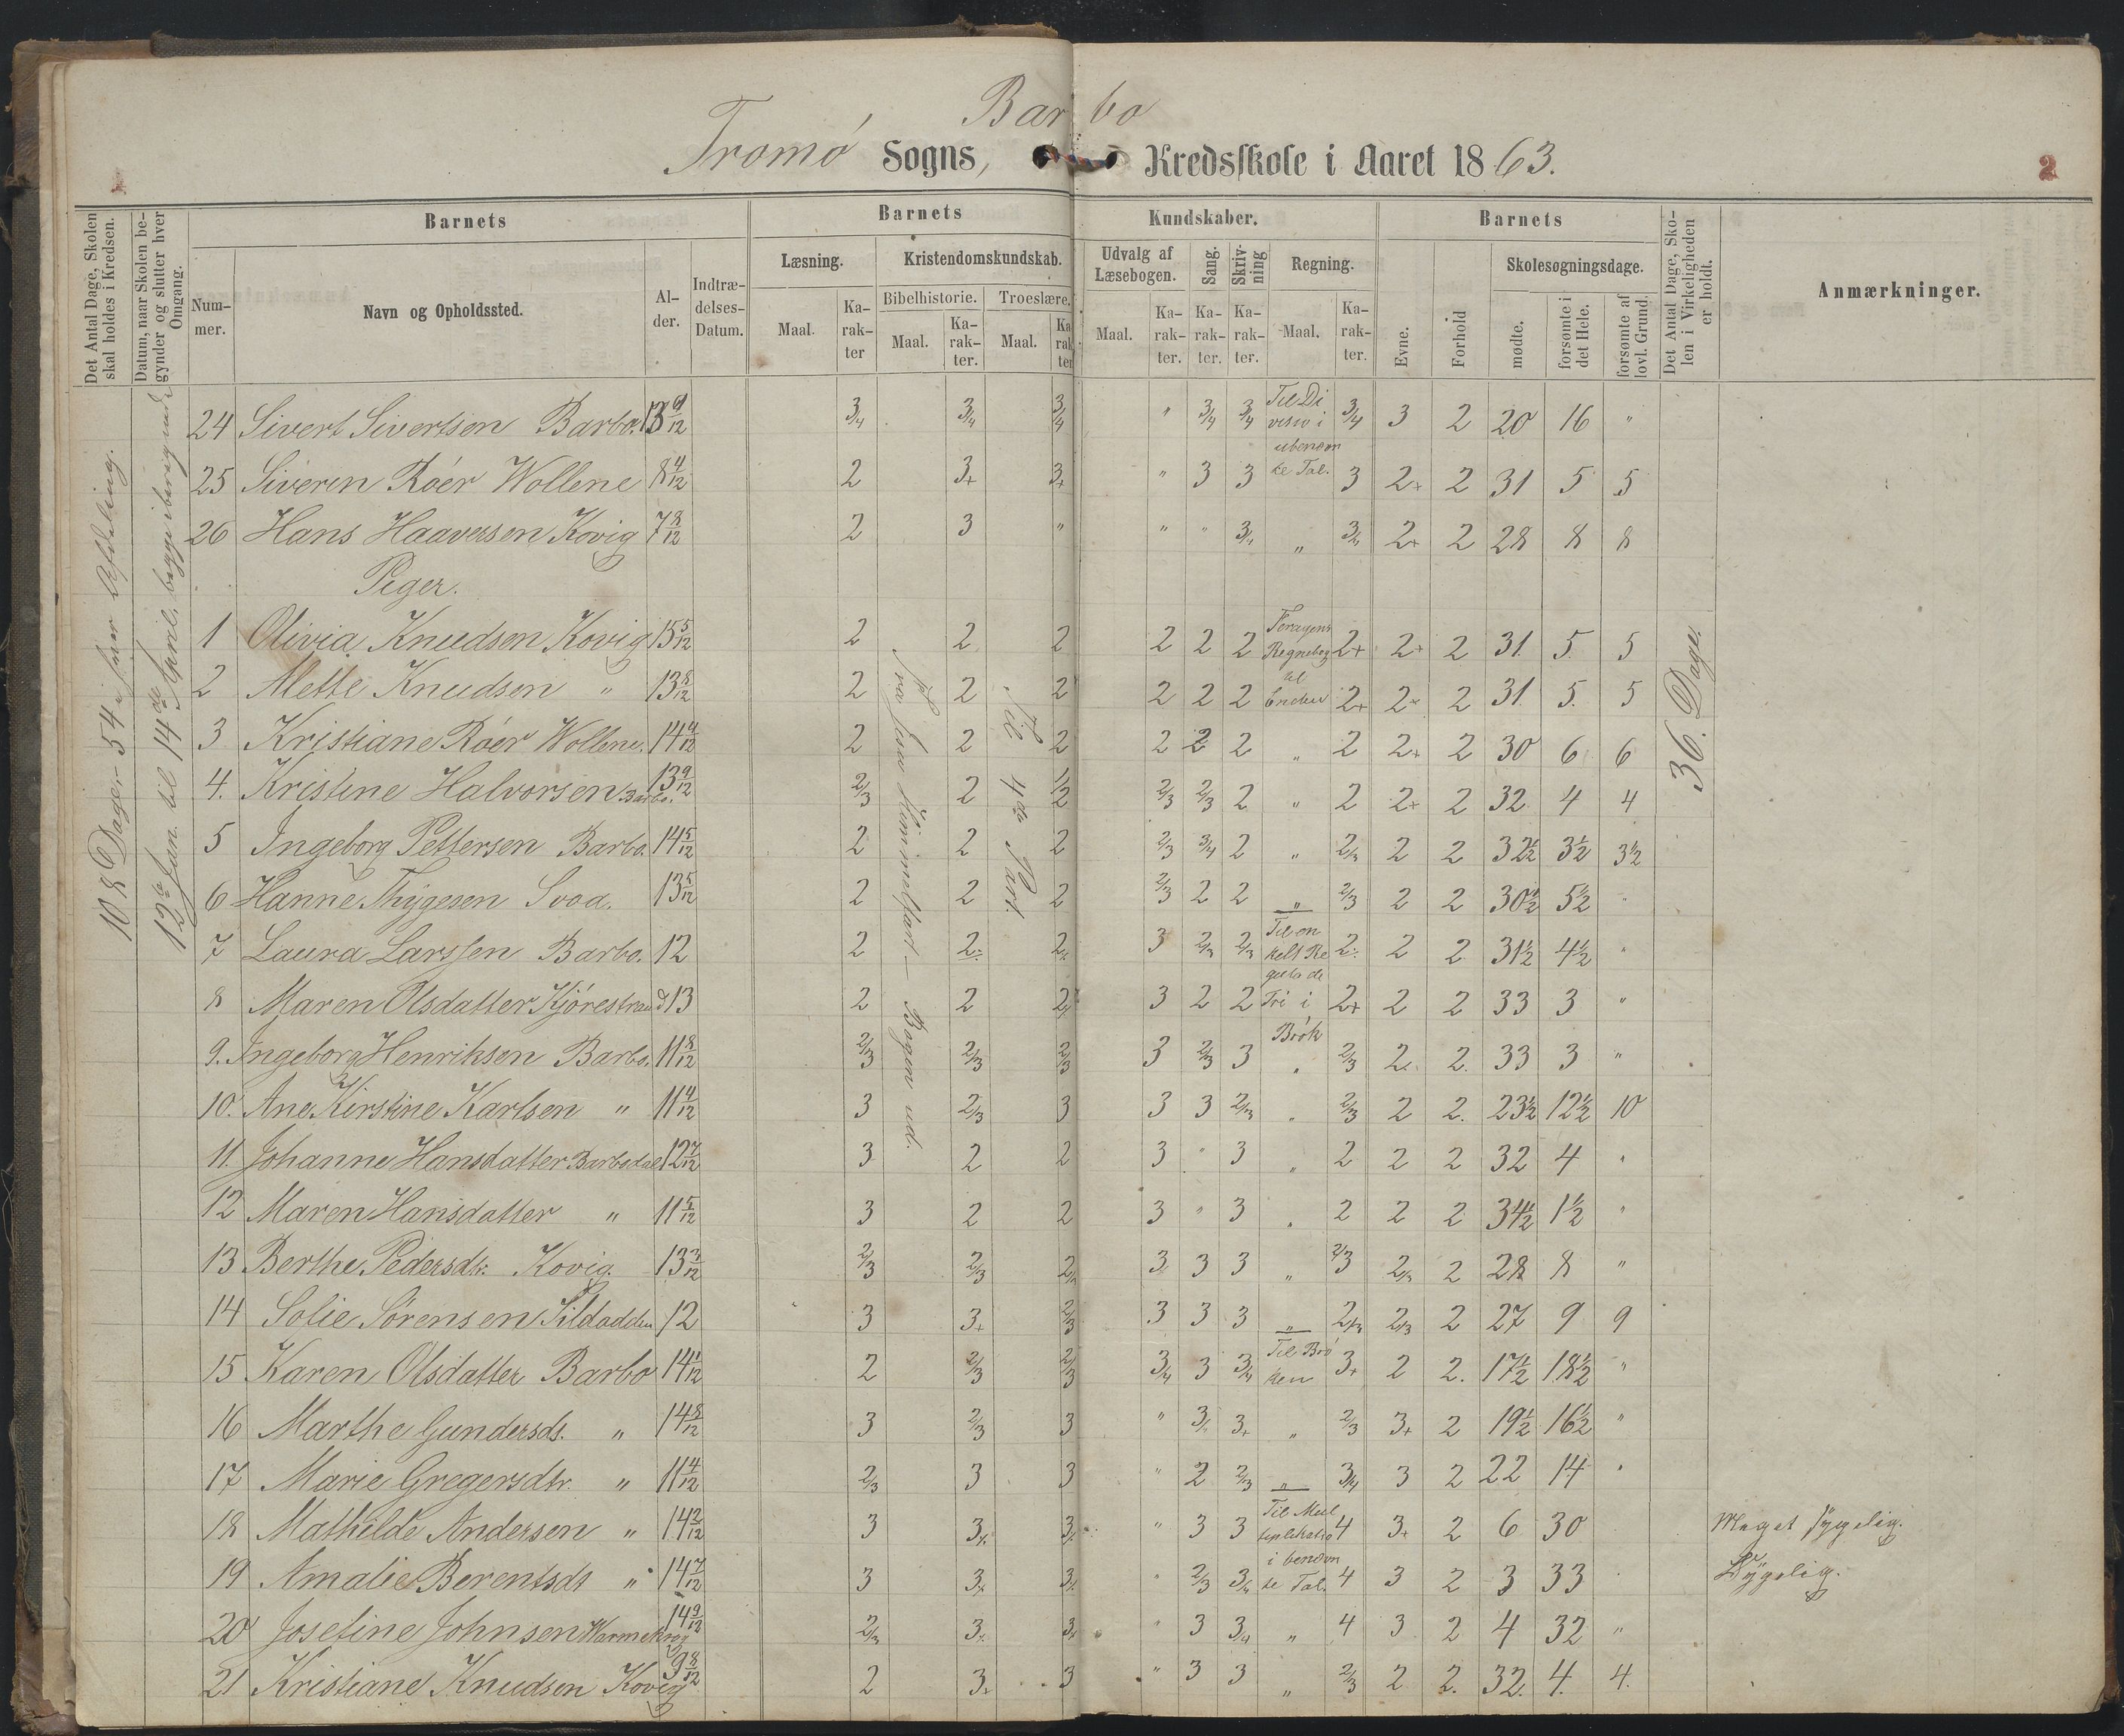 Barbo
Tromö Sogns, Kredsskole i Aaret 1863.
2
Det Antal Dage, Skolen skal holdes i Kredsen.
Datum, naar Skolen begynder og slutter hver Omgang.
Barnets
Nummer.
Navn og Opholdssted.
Alder.
Indtrædelses-Datum.
Barnets Kundskaber.
Læsning.
Maal.
Karakter
Kristendomskundskab.
Bibelhistorie.
Maal.
Karakter.
Troeslære.
Maal.
Karakter
Udvalg af Læsebogen.
Maal.
Karakter.
Sang.
Karakter.
Skrivning
Karakter.
Regning.
Maal.
Karakter.
Barnets
Evne.
Forhold
Skolesøgningsdage.
mødte.
forsømte i det Hele.
forsømte af lovl. Grund.
Det Antal Dage, Skolen i Virkeligheden er holdt.
Anmærkninger.
108 Dage 54 i hver Afdeling.
13de Jan. til 14de April, begge iberegnede
Fra Jesu Himmelfart — Bogen ud.
Til 4de Part.
36. Dage.
24 Sivert Sivertsen Barbo. 13 9/12 3/4 3/4 3/4 " 3/4 3/4 Til Division i ubenævnte Tal. 3/4 3 2 20 16 "
25 Siveren Röer Wollene 8 4/12 2 3+ 3+ " 3 3 3 2+ 2 31 5 5
26 Hans Haaversen Kovig 7 8/12 2 3 " " " 3/4 " 3/4 2+ 2 28 8 8
Piger.
1 Olivia Knudsen Kovig 15 5/12 2 2 2 2 2 2 Regnebog til Enden 2+ 2+ 2 31. 5. 5
2 Mette Knudsen " 13 8/12 2 2 2 2 2 2 2+ 2+ 2 31. 5. 5
3 Kristiane Röer Wollene. 14 9/12 2 2 2 2 2 2 " 2 2+ 2 30 6 6
4. Kristine Halvorsen Barbo. 13 9/12 2/3 2 1/2 2/3 2/3 2 " 2 2+ 2 32 4 4
5 Ingeborg Pettersen Barbo. 14 5/12 2 2 2 2/3 3/4 2 " 2/3 2 2 32 1/2 3 1/2 3 1/2
6 Hanne Thygesen Svoa. 13 5/12 2 2 2 2/3 2 2 " 2/3 2 2 30 1/2 5 1/2 "
7 Laura Larssen Barbo. 12 2 2÷ 2÷ 3 2/3 2/3 Til enkelt Regula de Tri i Brök 2÷ 2 2 31 1/2 4 1/2 "
8 Maren Olsdatter Kjörestrand 13 2 2 2+ 3 2 2 2+ 2 2 33 3 "
9. Ingeborg Henriksen Barbo. 11 8/12 2/3 2/3 2/3 3 2/3 3 " 2/3 2 2. 33 3 "
10. Ane Kirstine Karlsen " 11 4/12 3 2/3 3 3 3 2/3 " 2/3 2 2. 23 1/2 12 1/2 10
11. Johanne Hansdatter Barbodal 12 7/12 3 2 2 3 " 3 " 2 2 2 32 4 "
12 Maren Hansdatter " 11 5/12 3 2 2 3 " 3 " 2 2 2 34 1/2 1 1/2 "
13 Berthe Pedersdtr. Kovig. 13 3/12 2/3 2/3 2/3 3 3 3 " 2/3 2/3 2 28 8 "
14 Solie Sörensen Sildodden 12 3 3+ 2/3 3 3 3 " 2/3 2/3 2 27 9 9
15 Karen Olsdatter Barbo 14 1/12 2 2/3 2/3 3/4 3 3/4 Til Bröken 3+ 2 2. 17 1/2 18 1/2 "
16 Marthe Gundersdt. " 14 8/12 3 2/3 3 " 3/4 3+ " 2/3 3+ 2 19 1/2 16 1/2 "
17 Marie Gregersdtr. " 11 4/12 2/3 3 3 " 2 2/3 " 3/4 3 2 22 14 "
18 Mathilde Andersen " 14 2/12 3 3÷ 3÷ " 3 3 Til Multiplikation i benævnte Tal. 4 3+ 2 6 30 Meget sygelig.
19 Amalie Berentsdt " 14 7/12 3 3÷ 3÷ " 2/3 3/4 4 3 2 3 33 Sygelig.
20 Josefine Johnsen Warmekrog 14 9/12 2/3 3÷ 3+ " 3 3/4 " 4 3 2 4 32 "
21 Kristiane Knudsen Kovig 9 8/12 2 3+ 3 " 3 3 " 2/3 2 2. 32. 4. 4.